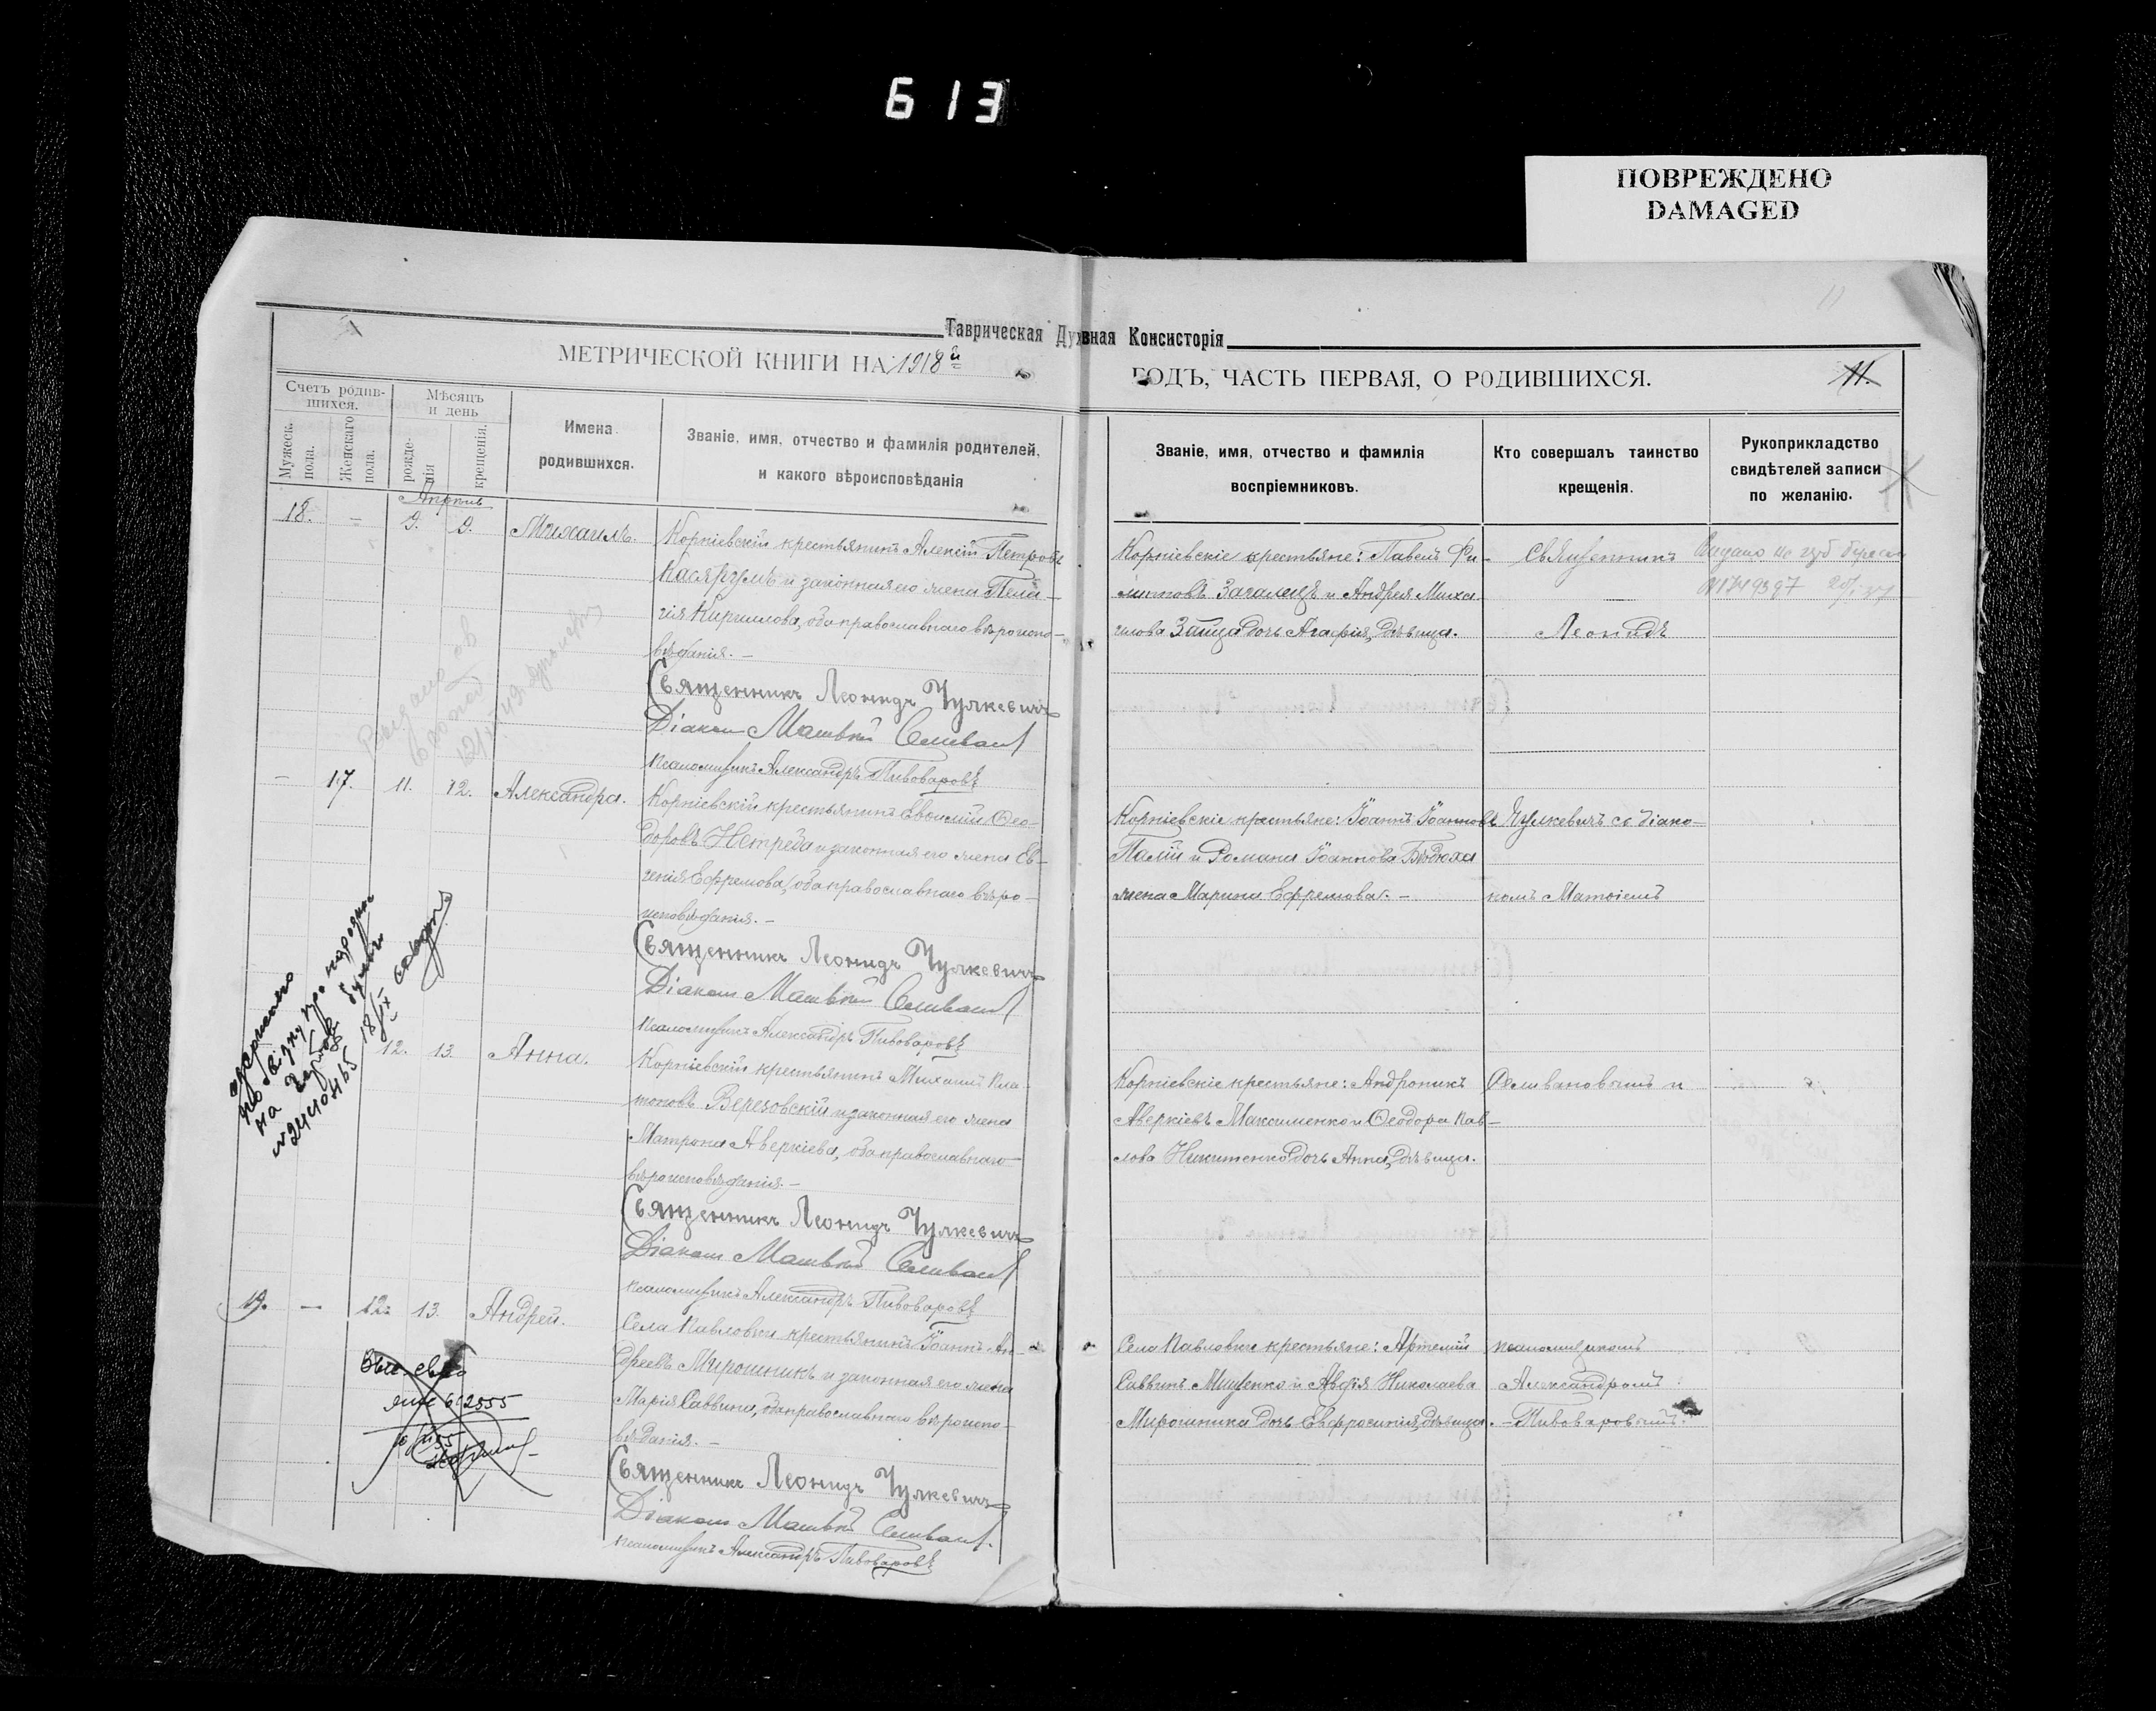 613
ПОВРЕЖДЕНО
DAMAGED
Таврическая Духовная Консисторія
МЕТРИЧЕСКОЙ КНИГИ НА 1918й
ГОДЪ, ЧАСТЬ ПЕРВАЯ, О РОДИВШИХСЯ.
11.
Счетъ родив-
шихся.
Мужеск. пола.
Женскаго пола.
Мѣсяцъ
и день
рожде-
нія
крещенія.
Имена
родившихся.
Званіе, имя, отчество и фамилія родителей,
и какого вѣроисповѣданія
Званіе, имя, отчество и фамилія
воспріемниковъ.
Кто совершалъ таинство
крещенія.
Рукоприкладство
свидѣтелей записи
по желанію.
Апрѣль
18. — 9. 9. Михаилъ.
Корніевскій крестьянинъ Алексій Петровъ
и законная его жена Пела-
гія Кириллова, оба православнаго вѣроиспо-
вѣданія. —
Священникъ Леонидъ Чулкевичъ
Діаконъ Матвѣй Селиванов
Псаломщикъ Александръ Пивоваровъ
Корніевскіе крестьяне: Павелъ Фи-
липповъ и Андрея Миха
илова Зайца дочь Агафія, дѣвица.
Священникъ
Леонидъ
— 17. 11. 12. Александра.
Корніевскій крестьянинъ Евѳимій Ѳео-
доровъ Нетреба и законная его жена Ев-
генія Ефремова, оба православнаго вѣро-
исповѣданія. —
Священникъ Леонидъ Чулкевичъ
Діаконъ Матвѣй Селиванов
Псаломщикъ Александръ Пивоваровъ
Корніевскіе крестьяне: Іоаннъ Іоанновъ
Палій и Романа Іоаннова
жена Марина Ефремова. —
Чулкевичъ съ діако-
номъ Матѳіемъ
12. 13. Анна.
Корніевскій крестьянинъ Михаилъ Пла-
тоновъ Верезовскій и законная его жена
Матрона Аверкіева, оба православнаго
вѣроисповѣданія. —
Священникъ Леонидъ Чулкевичъ
Діаконъ Матвѣй Селиванов
Псаломщикъ Александръ Пивоваровъ
Корніевскіе крестьяне: Андроникъ
Аверкіевъ Максименко и Ѳеодора Пав-
лова Никитенко дочь Анна, дѣвица.
Селивановымъ и
19. — 12. 13. Андрей.
Села Павловки крестьянинъ Іоаннъ Ан-
дреевъ Мирошникъ и законная его жена
Марія Саввина, оба православнаго вѣроиспо-
вѣданія. —
Священникъ Леонидъ Чулкевичъ
Діаконъ Матвѣй Селиванов.
Псаломщикъ Александръ Пивоваровъ
Села Павловки крестьяне: Артемій
Саввинъ Мищенко и Авдія Николаева
Мирошника дочь Евфросинія, дѣвица.
псаломщикомъ
Александромъ
— Пивоваровымъ.